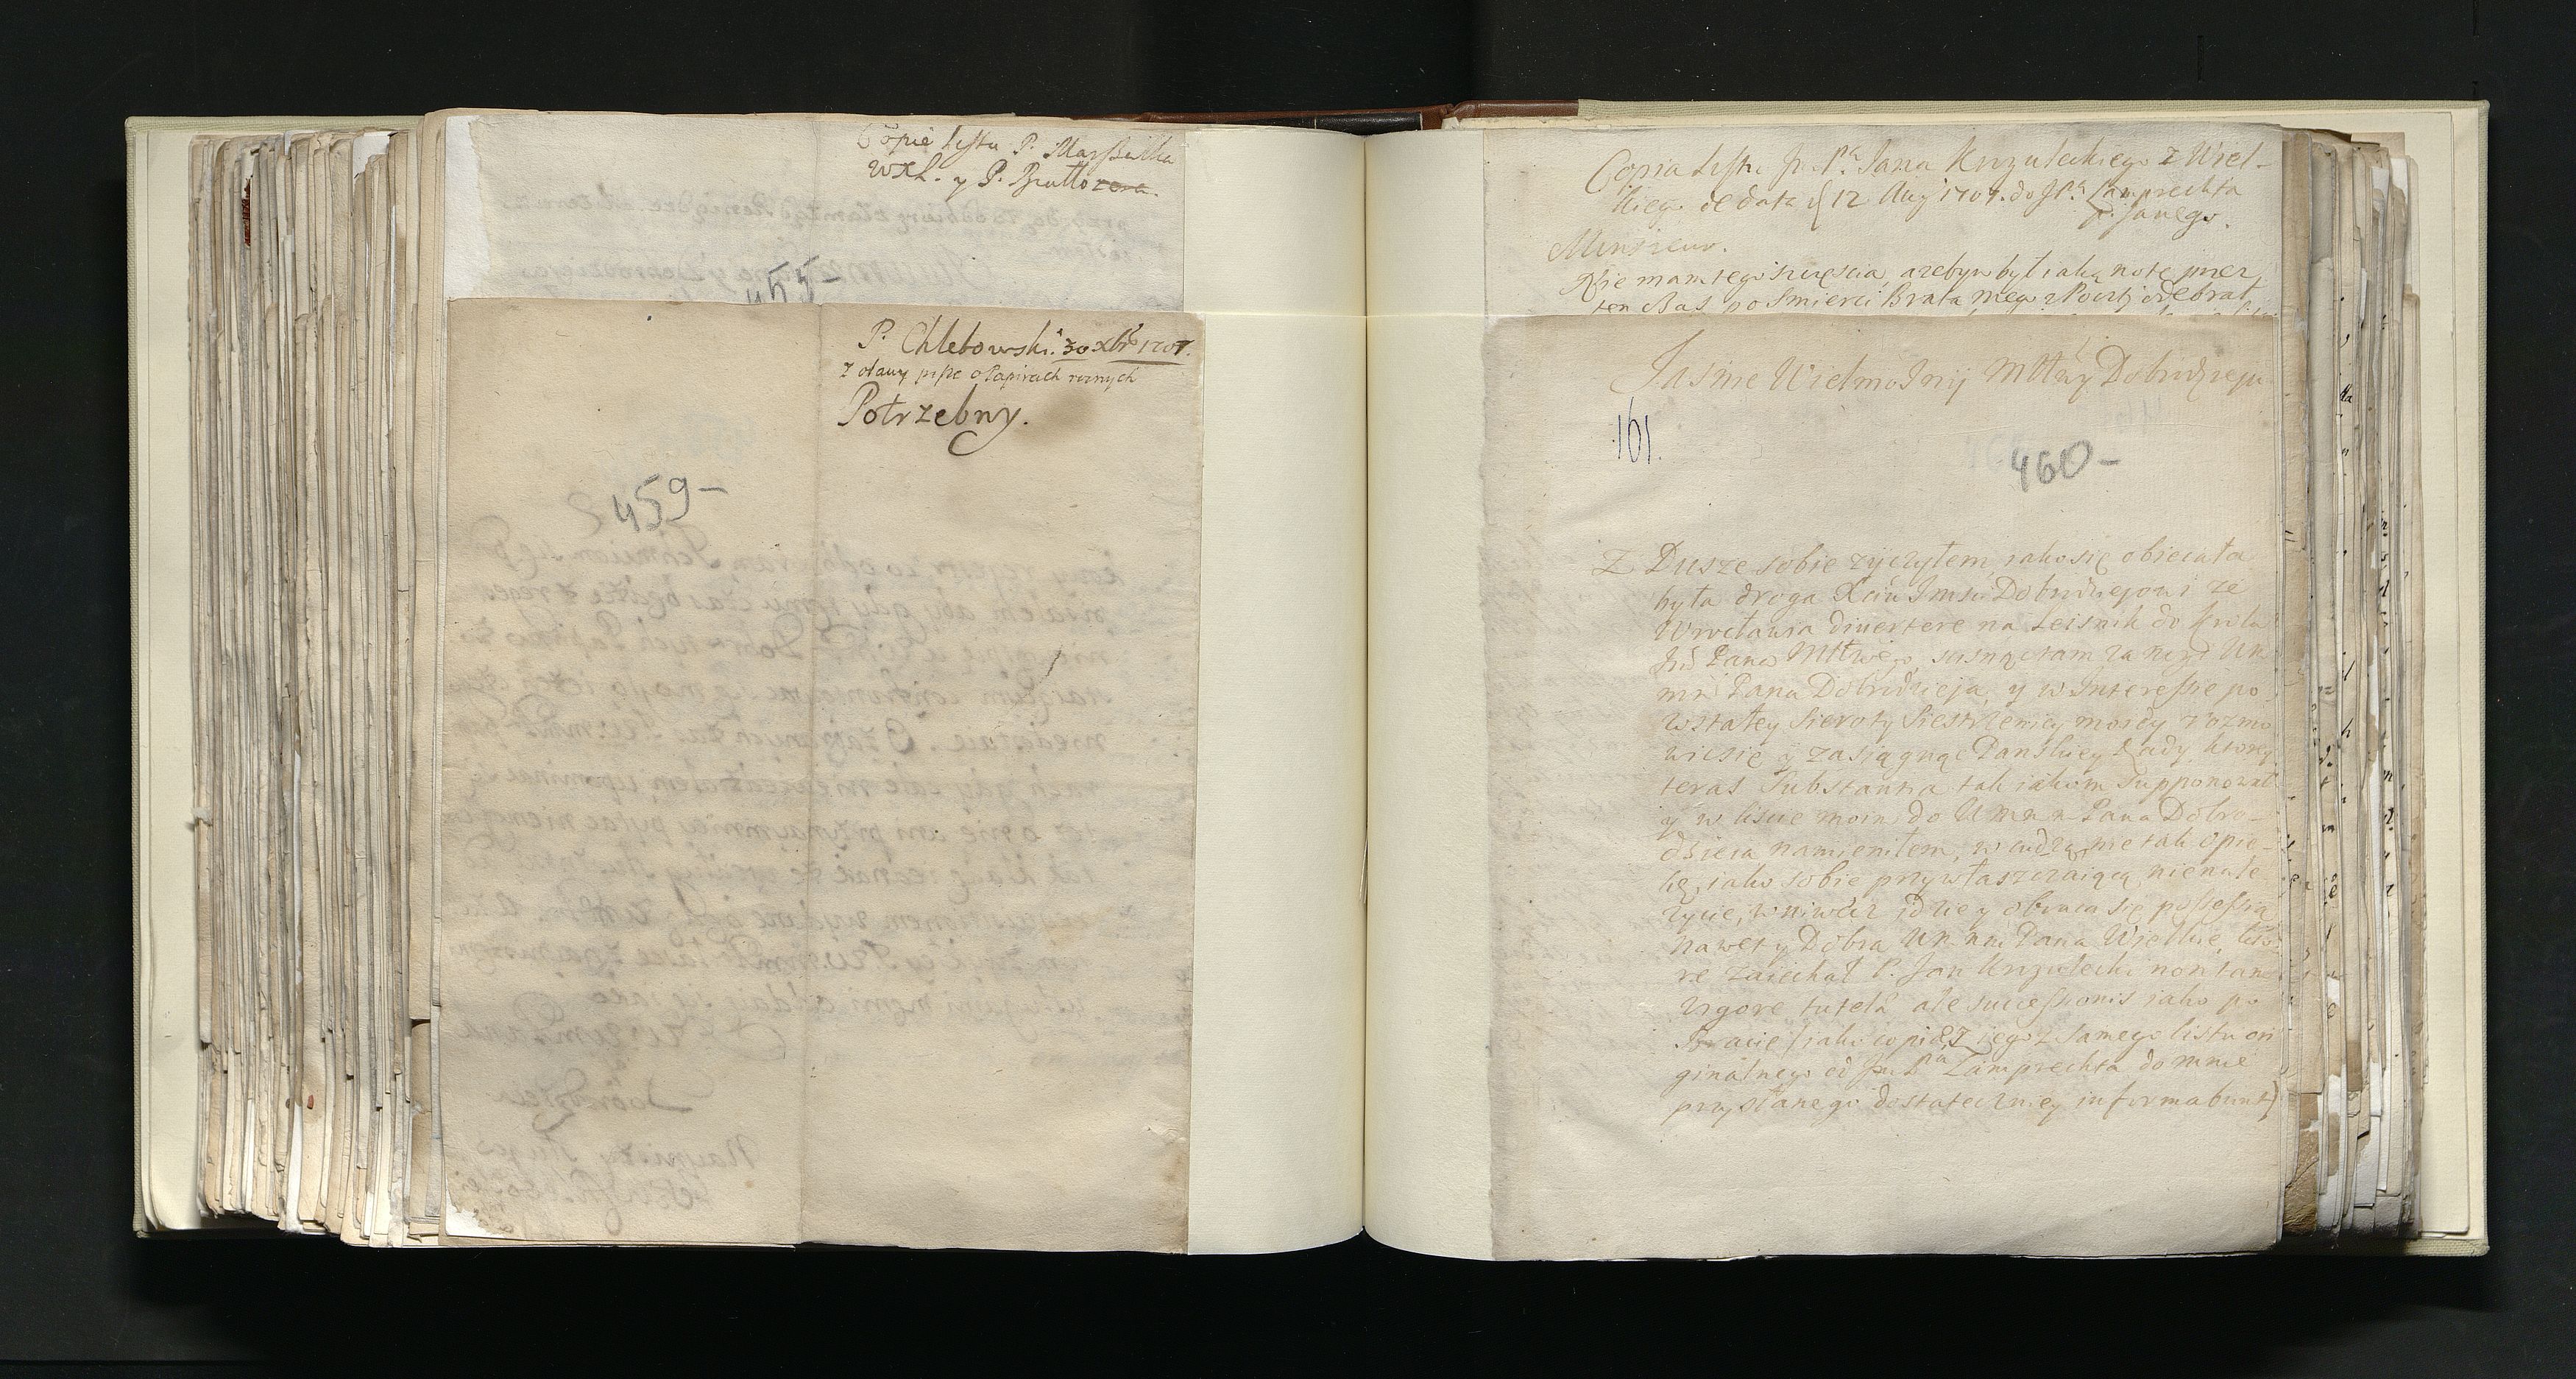 Copie listu P. Marszałka
WXL. y P. Putto
455-
P. Chlebowski. 30 xbr 1707.
z otawy pisze o Papirach roznych
Potrzebny.
459-
Copia listu Jana Krzuleckiego z Wiel-
kiego de data 12 Aug 1707. do Lamprechta
pisanego.
Monsieur.
Nie mam tego szczęscia, azebym był iaką notę przez
ten czas po smierci Brata mego z Poczty odebrał
Jasnie Wielmożny Mtwy Dobrodzieju
161.
460-
Z Dusze sobie zyczyłem, iako się obiecała
była droga Xciu Imsci Dobrodziejowi ze
Wrocławia divertere na Leisnik do Krola
Pana Mtwego, tam za
Pana Dobrodzieja, y w Interessie po
wstałey Sieroty Siestrzenicy moiey rozmo
wic się y zasiągnąc Panskiey Rady, ktorey
teras Substantia tak iakom Supponował
y w liscie moim do Pana Dobro-
dzieia namieniłem, w cudzą nie tak opie-
kę, iako sobie przywłaszczaiącą nienale
zycie, wniwecz idzie y obraca się possessią
nawet y Dobra Pana Wielkie, kto
re zaiechał P. Jan Krzulecki non tam
vigore tutelæ ale successionis iako po
Bracie (iako copia z iego z samego listu ori
ginalnego od Lamprechta do mnie
przysłanego dostateczniey informabunt)